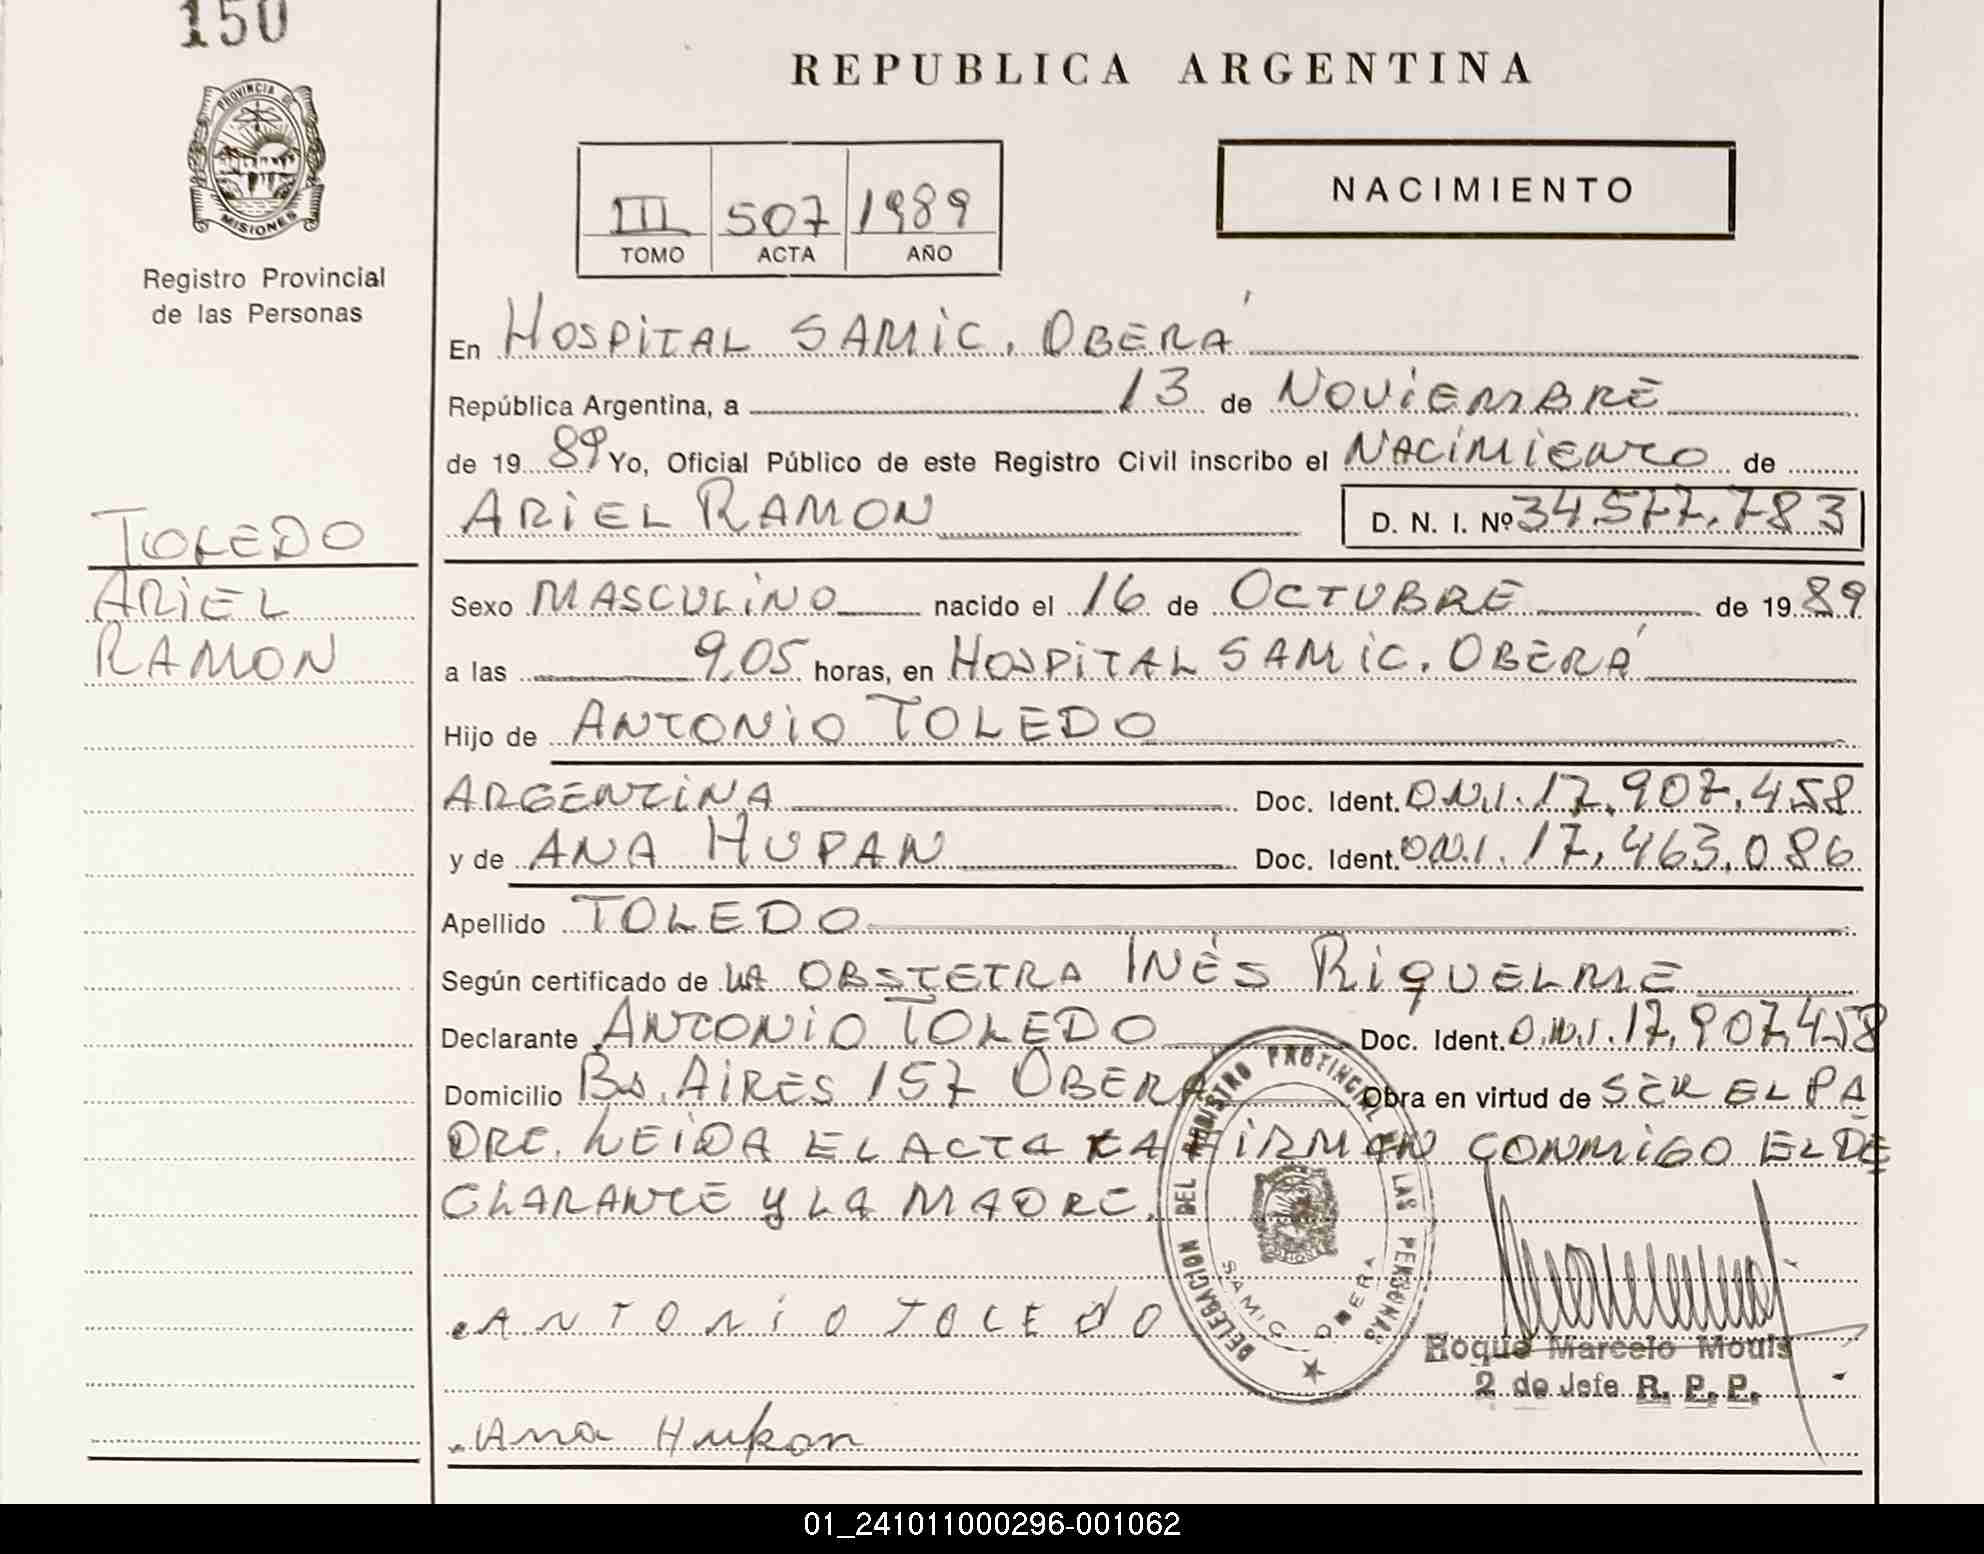 150
PROVINCIA DE
MISIONES
Registro Provincial
de las Personas
REPUBLICA ARGENTINA
III 507 1989
TOMO ACTA AÑO
NACIMIENTO
En HOSPITAL SAMIC. OBERÁ
República Argentina, a 13 de NOVIEMBRE
de 19 89 Yo, Oficial Público de este Registro Civil inscribo el NACIMIENTO de
ARIEL RAMON D. N. I. Nº 34.577.783
TOLEDO
ARIEL
RAMON
Sexo MASCULINO nacido el 16 de OCTUBRE de 19 89
a las 9,05 horas, en HOSPITAL SAMIC. OBERÁ
Hijo de ANTONIO TOLEDO
ARGENTINA Doc. Ident. D.N.I. 17.907.458
y de ANA HUPAN Doc. Ident. D.N.I. 17.463.086
Apellido TOLEDO
Según certificado de LA OBSTETRA INÉS RIQUELME
Declarante ANTONIO TOLEDO Doc. Ident. D.N.I. 17.907.458
Domicilio Bs. AIRES 157 OBERA Obra en virtud de SER EL PA
DRE. LEIDA EL ACTA LA FIRMAN CONMIGO EL DE
CLARANTE Y LA MADRE.
DELEGACION DEL REGISTRO PROVINCIAL DE LAS PERSONAS
SAMIC OBERA
ANTONIO TOLEDO
Roque Marcelo Mouls
2 do Jefe R. P. P.
Ana Hupan
01_241011000296-001062